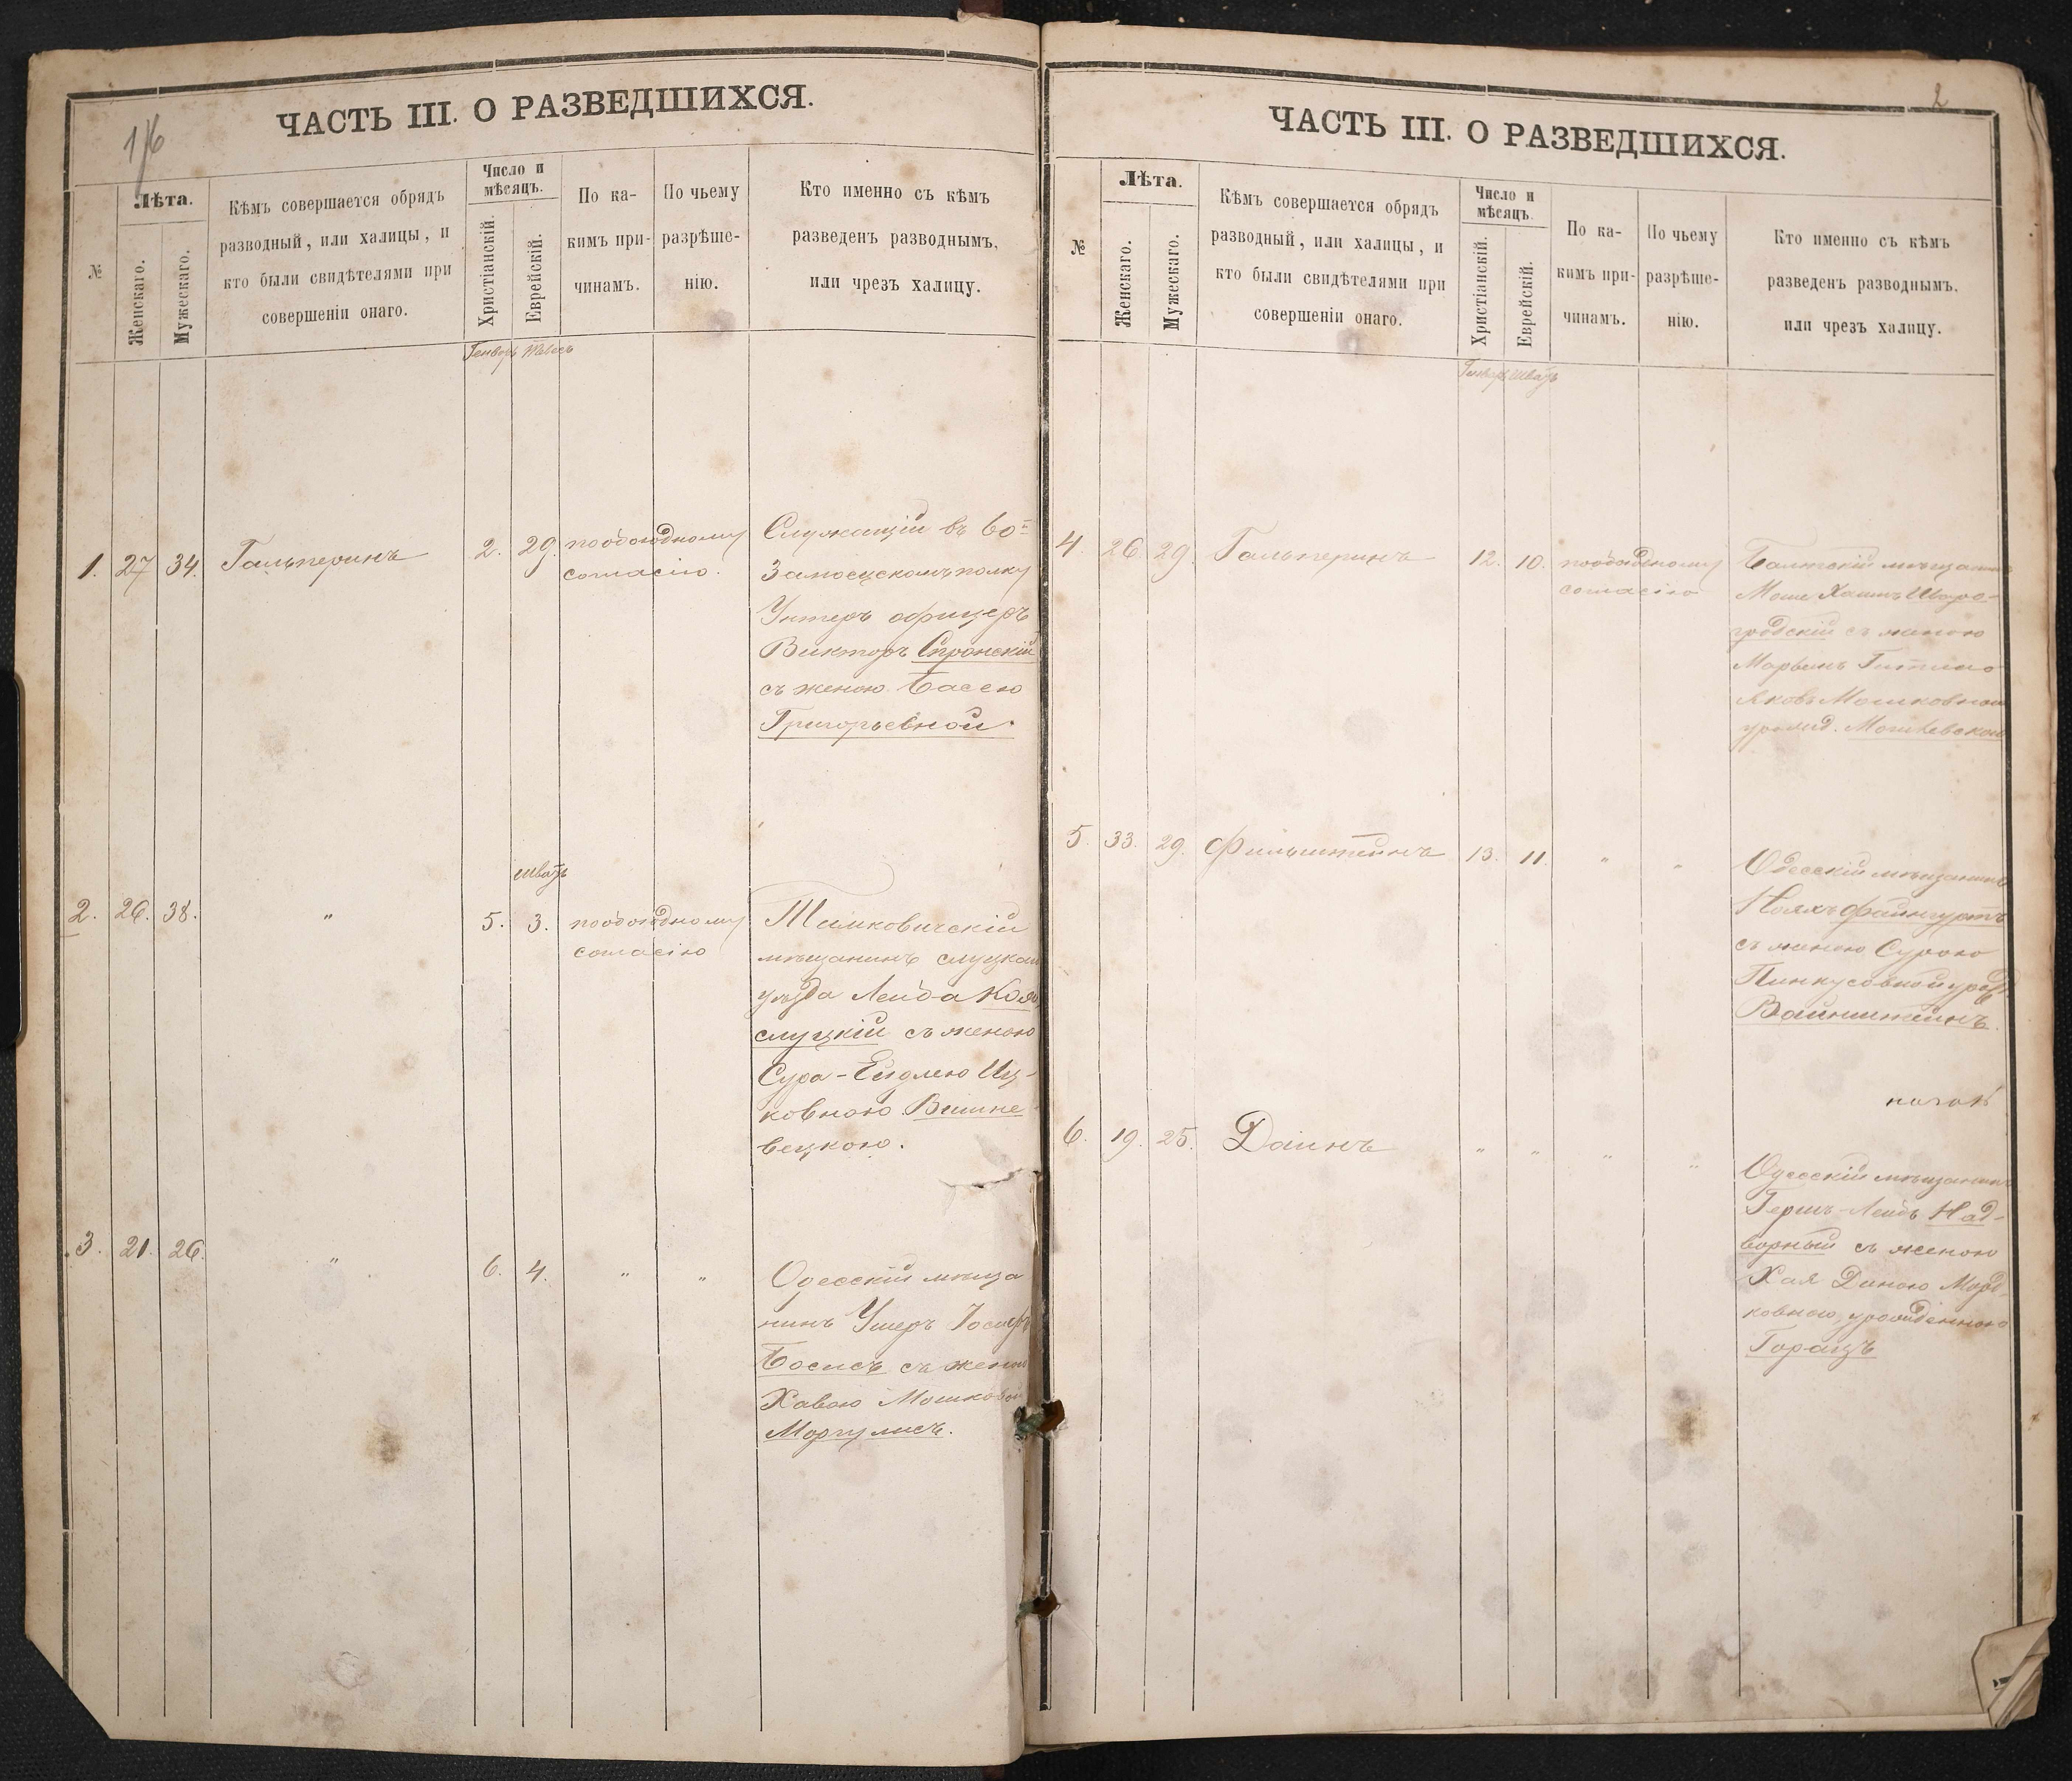 1/6
ЧАСТЬ III. О РАЗВЕДШИХСЯ.
№
Лѣта.
Женскаго.
Мужескаго.
Кѣмъ совершается обрядъ
разводный, или халицы, и
кто были свидѣтелями при
совершеніи онаго.
Число и
мѣсяцъ.
Христіанскій.
Еврейскій.
По ка-
кимъ при-
чинамъ.
По чьему
разрѣше-
нію.
Кто именно съ кѣмъ
разведенъ разводнымъ,
или чрезъ халицу.
Генворь Тевесъ
1. 27 34. Гальперинъ 2. 29.
пообоюдному
согласію.
Служащій въ 60й
Замосцскомъ полку
Унтеръ офицеръ
Викторъ Спронскій
съ женою Бассею
Григорьевной.
Шватъ
2. 26. 38. " 5. 3.
пообоюдному
согласію
Тимковичскій
мѣщанинъ слуцкаго
уѣзда Лейба
слуцкій съ женою
Сура-Ейдлею Иц-
ковною Вишне
вецкою.
3. 21. 26. " 6. 4. " "
Одесскій мѣща
нинъ Ушеръ Іосифъ
Босисъ съ женою
Хавою Мошковой
Моргулисъ.
2
ЧАСТЬ III. О РАЗВЕДШИХСЯ.
№
Лѣта.
Женскаго.
Мужескаго.
Кѣмъ совершается обрядъ
разводный, или халицы, и
кто были свидѣтелями при
совершеніи онаго.
Число и
мѣсяцъ.
Христіанскій.
Еврейскій.
По ка-
кимъ при-
чинамъ.
По чьему
разрѣше-
нію.
Кто именно съ кѣмъ
разведенъ разводнымъ,
или чрезъ халицу.
Генворь Шватъ
4. 26 29. Гальперинъ 12. 10.
пообоюдному
согласію
Балтскій мѣщанинъ
Моше Хаимъ
гродскій съ женою
Марьемъ Гитлею
Мошковною
урожд.
5. 33. 29. Фильштейнъ 13. 11. " "
Одесскій мѣщанинъ
Нояхъ Файнгуртъ
съ женою Сурою
Пинкусовной урожд.
Вайнштейнъ.
6. 19. 25. Даинъ " " " "
Одесскій мѣщанинъ
Гершъ-Лейбъ Над-
ворный съ женою
Хая Диною Морд-
ковною, урожденною
Горацъ